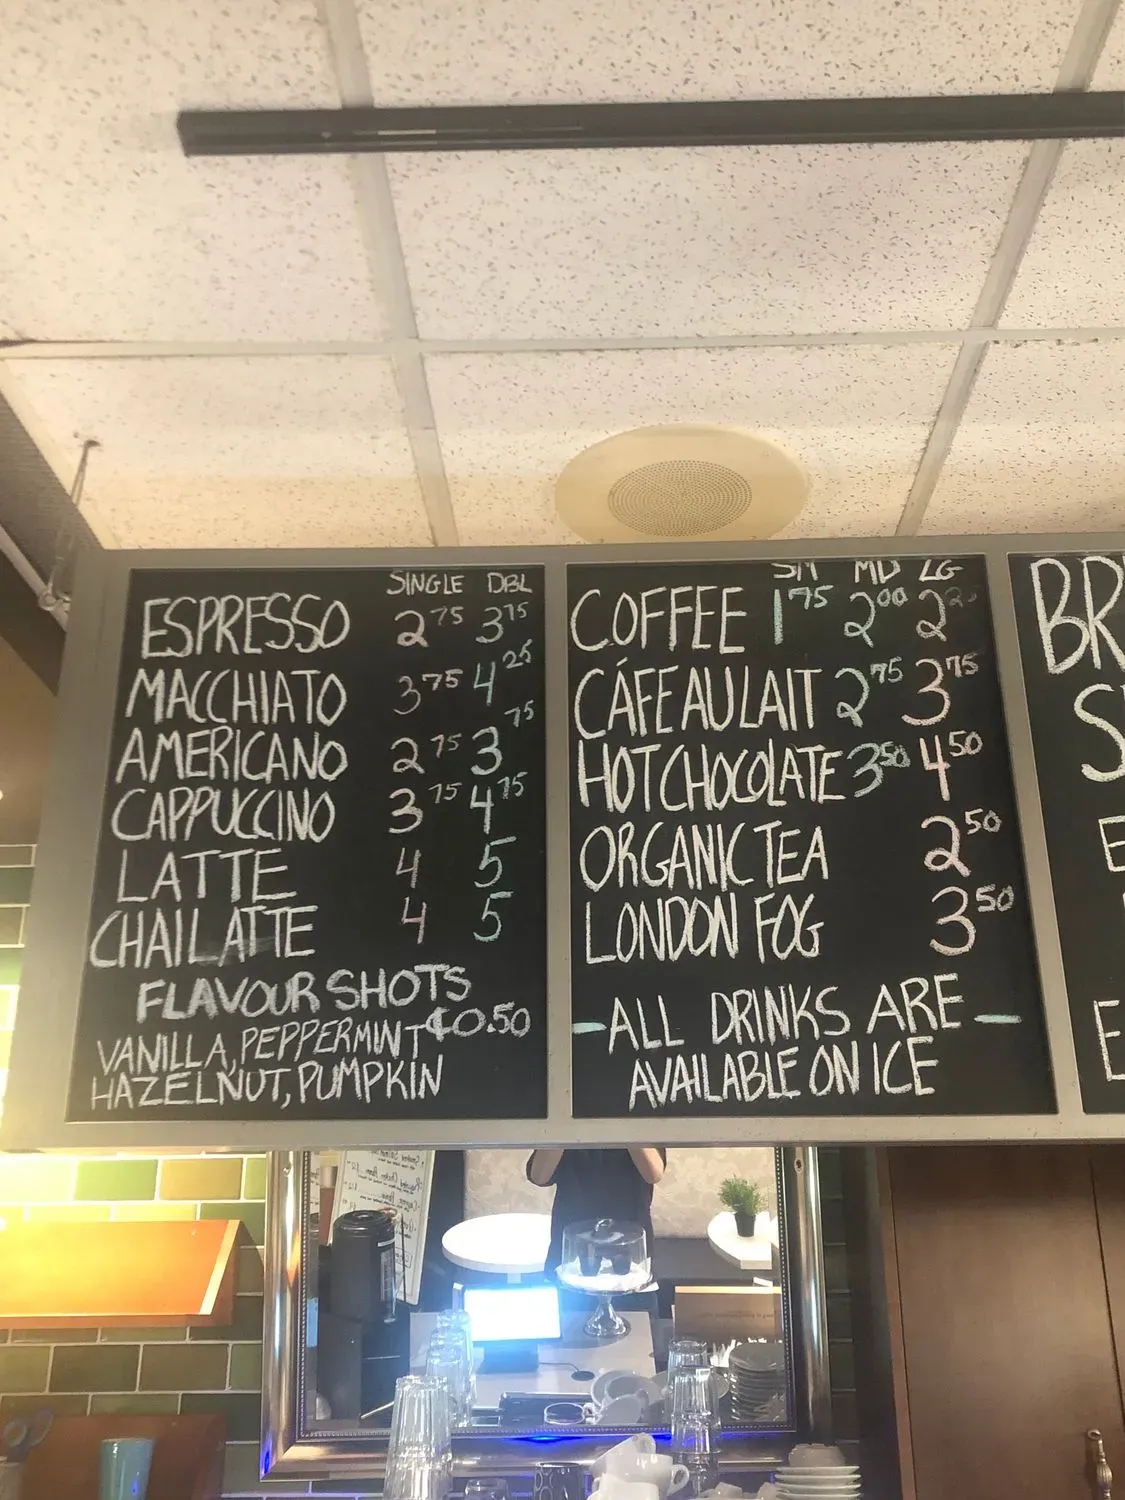 SINGLE DBL
ESPRESSO 2.75 3.75
MACCHIATO 3.75 4.25
AMERICANO 2.75 3.75
CAPPUCCINO 3.75 4.75
LATTE 4 5
CHAI LATTE 4 5
FLAVOUR SHOTS
VANILLA, PEPPERMINT ¢0.50
HAZELNUT, PUMPKIN
SM MD LG
COFFEE 1.75 2.00 2.25
CÁFE AU LAIT 2.75 3.75
HOT CHOCOLATE 3.50 4.50
ORGANIC TEA 2.50
LONDON FOG 3.50
- ALL DRINKS ARE -
AVAILABLE ON ICE
BR
S
E
E